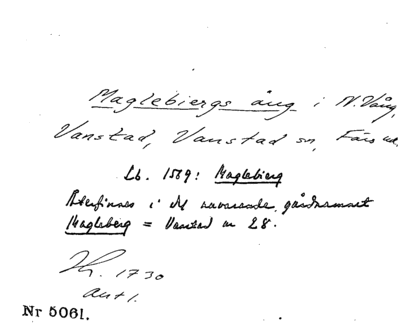 Maglebiergs äng i N. Vång,
Vanstad, Vanstad sn, Färs hd.
Lb. 1569: Magleberg
Återfinnes i det nuvarande gårdnamnet
Magleberg = Vanstad nr 28.
1730
Nr 5061.